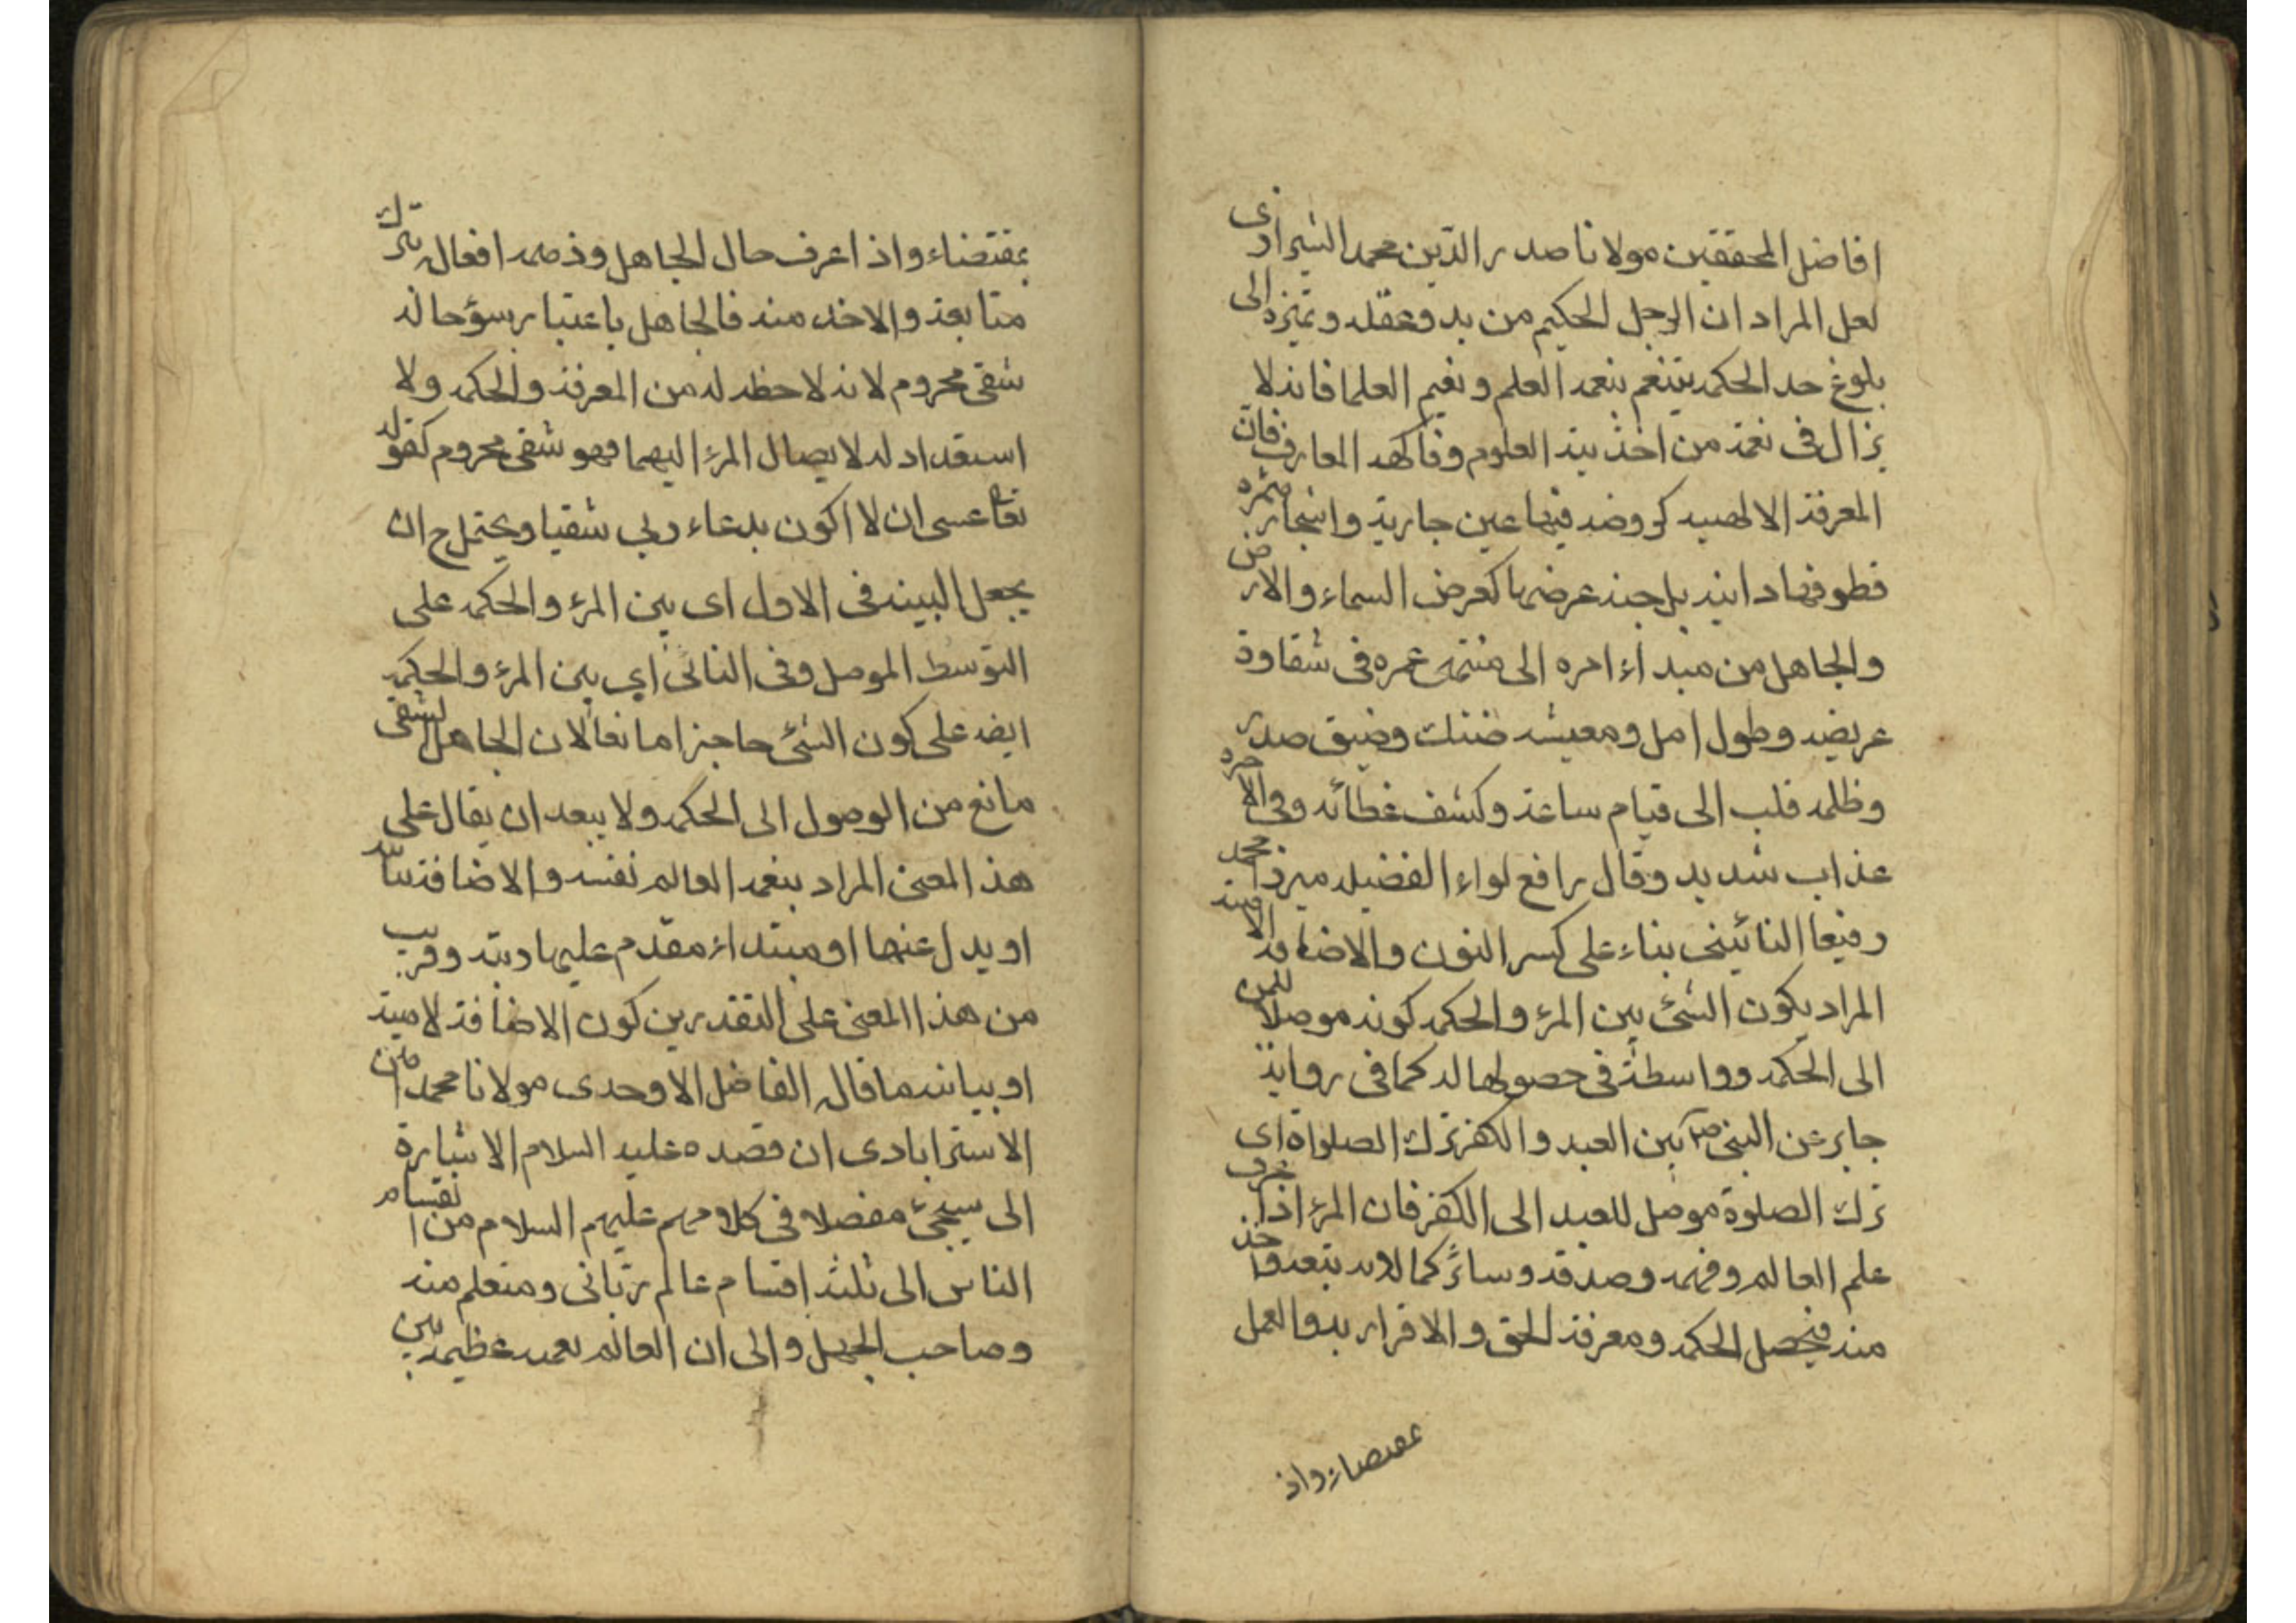 افاضل المحققين مولانا صدر الدين محمد الشيرازى
لعل المراد ان الرجل الحكيم من بدو عقله و تميزه الى
بلوغ حد الحكمه يتنعم بنعمه العلم و نعيم العلما فانه لا
يزال فى نعمة من اخذيته العلوم وفاكهه المعارف فان
المعرفة الالهيه كروضه فيها عين جارية واشجار مثمره
قطوفها دانيه بل جنه عرضها كعرض السماء والارض
والجاهل من مبداء امره الى منتهى عمره فى شقاوة
عريضه وطول امل ومعيشه ضنك وضيق صدر
وظلمه قلب الى قيام ساعته وكشف غطائه وفى الاخره
عذاب شديد وقال رافع لواء الفضيله ميرزا محمد
رفيعا النائينى بناء على كسر النون والاضافة اللامية
المراد بكون الشئ بين المرء والحكمه كونه موصلا للمرء
الى الحكمه وواسطة فى حصولها له كما فى رواية
جابر عن النبى ص بين العبد والكفر ترك الصلواة اى
ترك الصلوة موصل للعبد الى الكفر فان المرء اذا عرف
علم العالم وفهمه وصدقه وسائر كمالاته يتبعه واخذ
منه فيحصل الحكمه ومعرفة الحق والاقرار به والعمل
بمقتضاء واذ
بمقتضاء واذا عرف حال الجاهل وذمه افعاله ترك
متابعة والاخذ منه فالجاهل باعتبار سوء حاله
شقى محروم لانه لا حظ له من المعرفة والحكمه ولا
استعداد له لايصال المرء اليهما فهو شقى محروم كقوله
تعا عسى ان لا اكون بدعاء ربي شقيا ويحتمل ح ان
يجعل البينه فى الاول اى بين المرء والحكمه على
التوسط الموصل وفى الثانى اي بين المرء والحكمه
ايضه على كون الشئ حاجزا مانعا لان الجاهل الشقى
مانع من الوصول الى الحكمه ولا يبعد ان يقال على
هذ المعنى المراد بنعمه العالم نفسه والاضافة بيانيه
او بدل عنها او مبتداء مقدم عليها رتبه وقريب
من هذا المعنى على التقدرين كون الاضافة لامية
او بيانيه ما قال الفاضل الاوحدى مولانا محمد امين
الاسترابادى ان قصده عليه السلام الاشارة
الى سيجئ مفصلا فى كلامهم عليهم السلام من انقسام
الناس الى ثلثه اقسام عالم ربانى ومتعلم منه
وصاحب الجهل والى ان العالم نعمه عظيمه بين